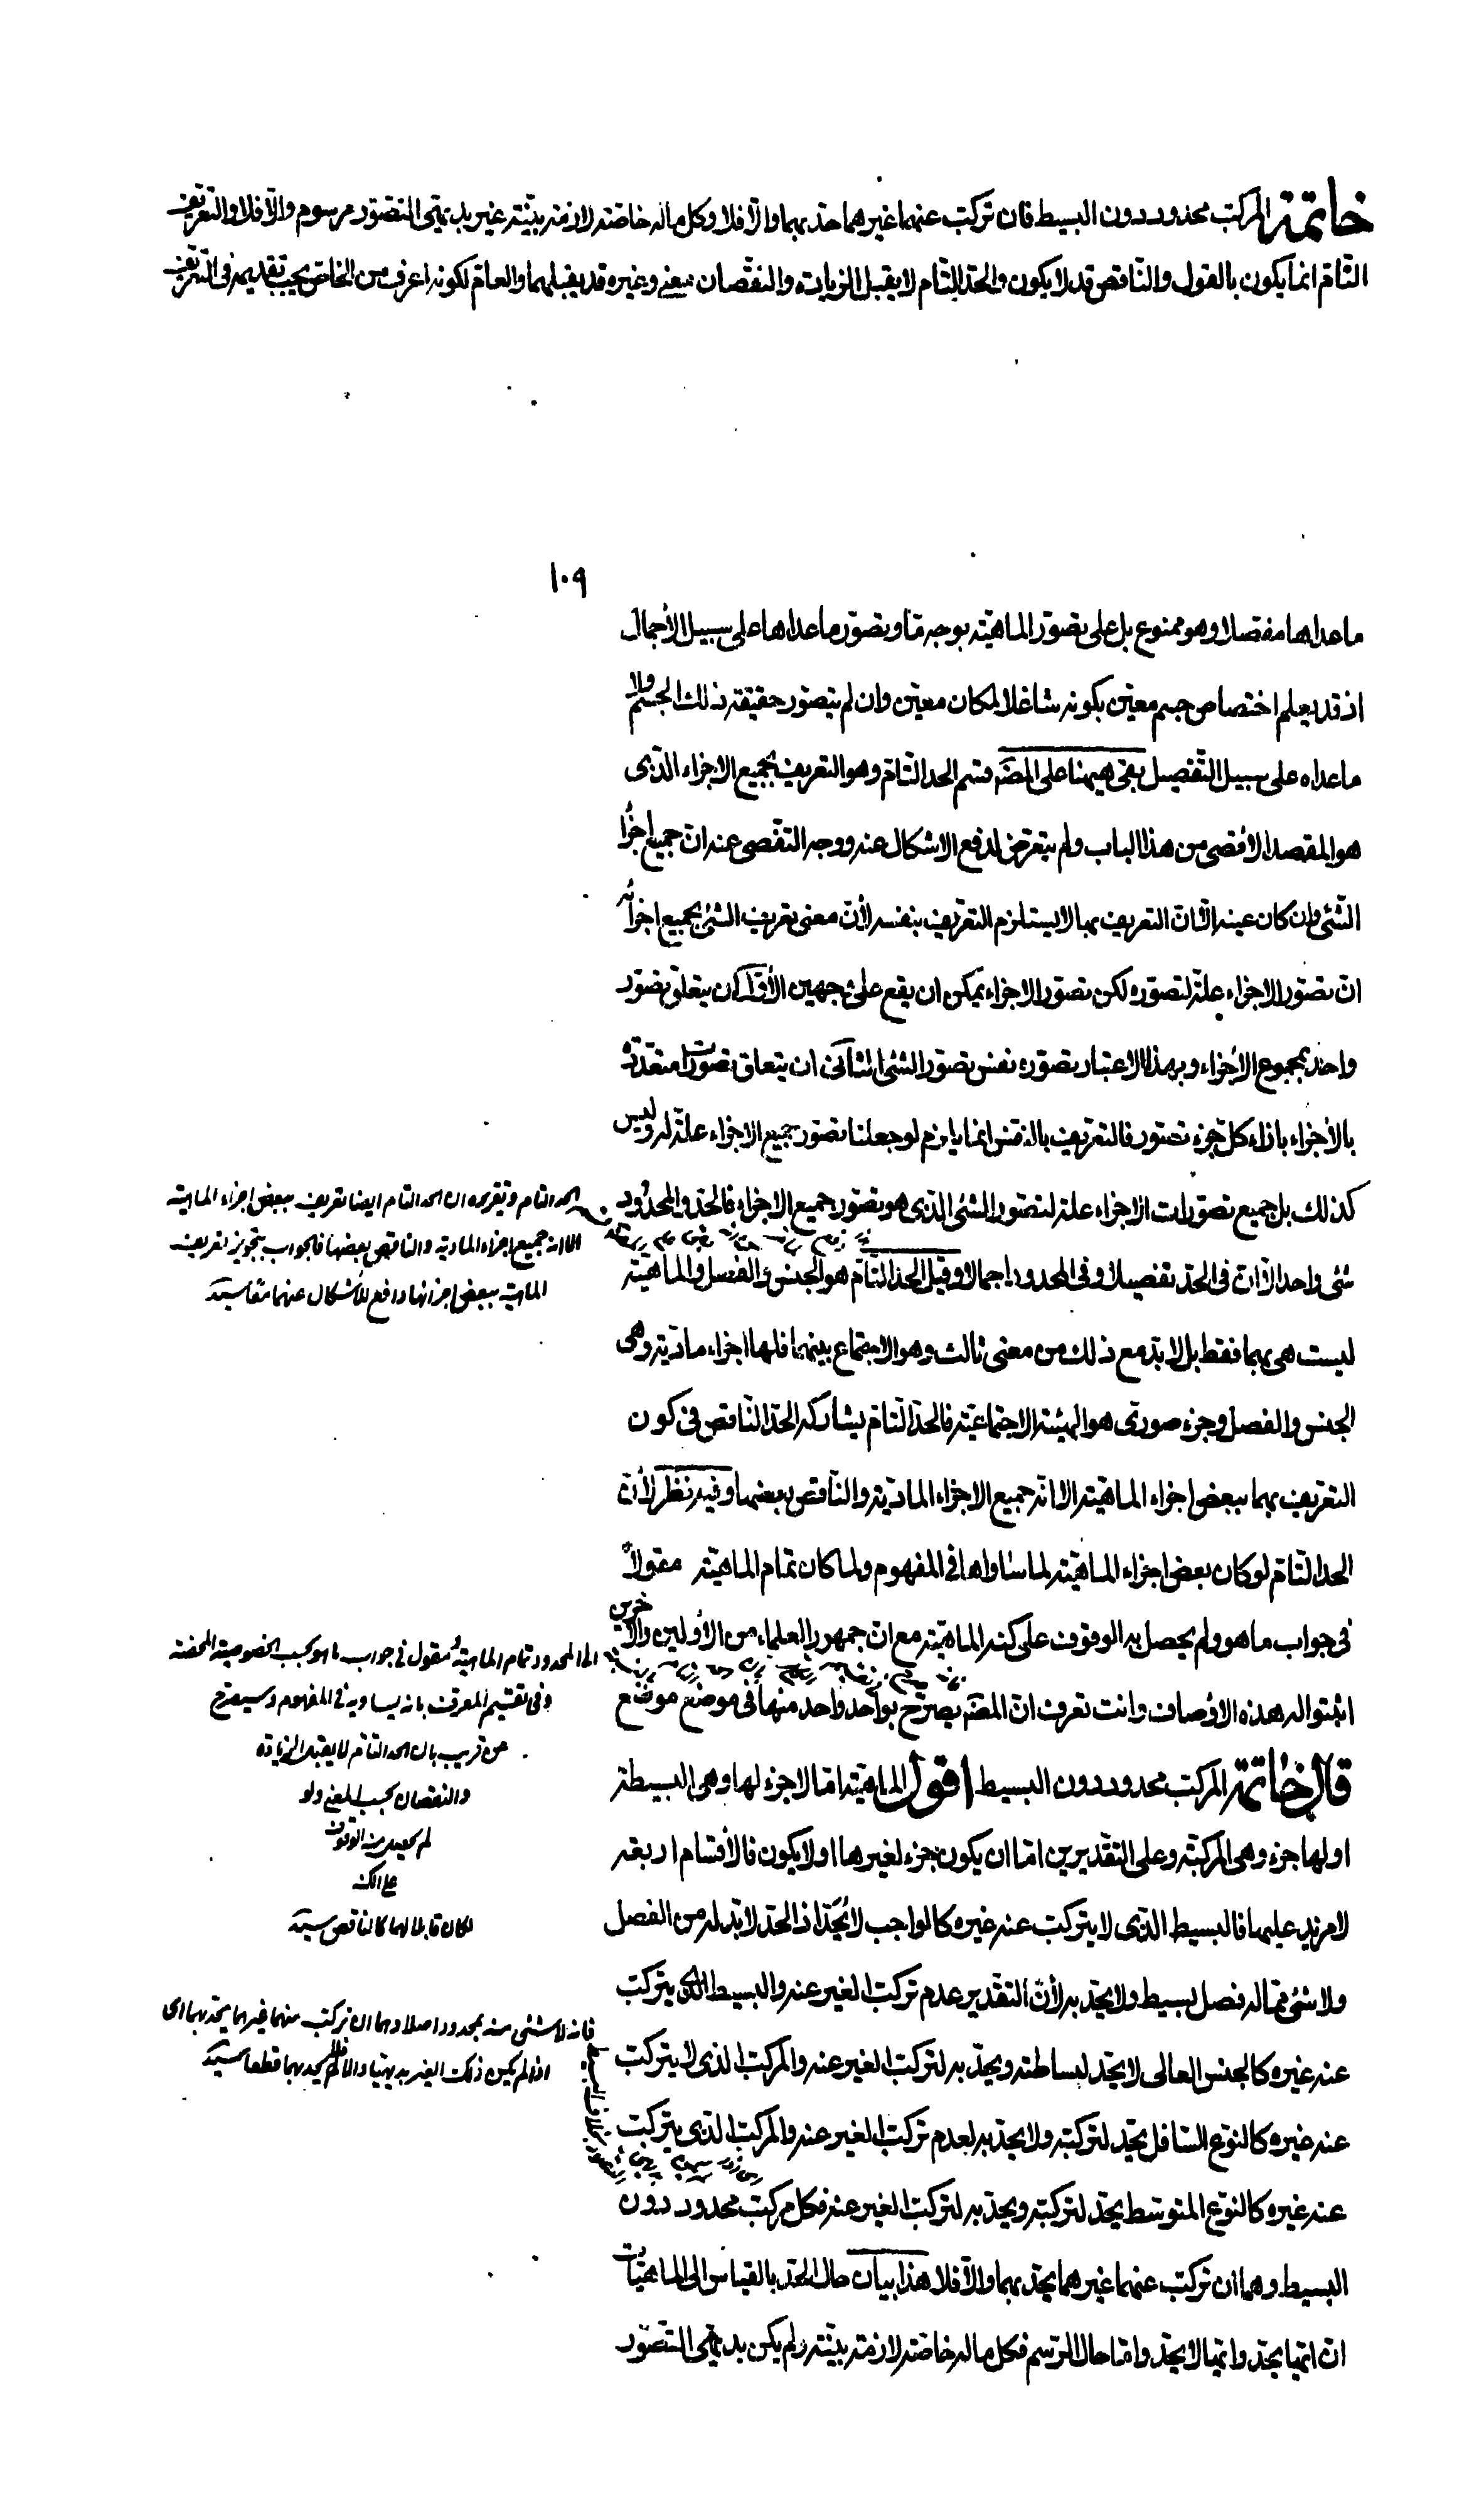 خاتمة المركب محدود دون البسيط فان تركب عنهما غيرهما حد بهما والا فلا وكل ماله خاصة لازمة بينة غير بديهي التصور مرسوم والا فلا والتعريف
التام انما يكون بالقول والناقص قد لا يكون والحد التام لا يقبل الزيادة والنقصان بمعنى وغيره قد يقبلهما والعام لكونه اعرف من الخاص يجب تقديمه في التعريف
١٠٩
ما عداها مفصلا وهو ممنوع بل على تصور الماهية بوجه ما وتصور ما عداها على سبيل الأجمال
اذ قد يعلم اختصاص جسم معين بكونه شاغلا لمكان معين وان لم يتصور حقيقة ذلك الجسم ولا
ما عداه على سبيل التفصيل بقى ههنا على المصنف قسم الحد التام وهو التعريف بجميع الاجزاء الذى
هو المقصد الأقصى من هذا الباب ولم يتعرض لدفع الاشكال عنه ووجه التفصى عنه ان جميع اجزاء
الشئ وان كان عينه الا ان التعريف بها لا يستلزم التعريف بنفسه لأن معنى تعريف الشئ بجميع اجزائه
ان تصور الاجزاء علة لتصوره لكن تصور الاجزاء يمكن ان يقع على جهين الأول ان يتعلق تصور
واحد بمجموع الأجزاء وبهذا الاعتبار تصوره نفس تصور الشئ الثانى ان يتعلق تصورات متعددة
بالأجزاء بازاء كل جزء تصور فالتعريف بالنفس انما يلزم لو جعلنا تصور جميع الاجزاء علة له وليس
كذلك بل جميع تصورات الاجزاء علة لتصور الشئ الذى هو تصور جميع الاجزاء فالحد والمحدود
شئ واحد الا ان في الحد تفصيلا وفى المحدود اجمالا وقيل الحد التام هو الجنس والفصل والماهية
ليست هى بهما فقط بل لابد مع ذلك من معنى ثالث وهو الاجتماع بينهما فلها اجزاء مادية وهى
الجنس والفصل وجزء صورى هو الهيئة الاجتماعية فالحد التام يشاركه الحد الناقص فى كون
التعريف بهما ببعض اجزاء الماهية الا انه جميع الاجزاء المادية والناقص بعضها وفيه نظر لأن
الحد التام لو كان بعض اجزاء الماهية لما ساواها فى المفهوم ولما كان تمام الماهية مقولاً
فى جواب ما هو ولم يحصل به الوقوف على كنه الماهية مع ان جمهور العلماء من الأولين والآخرين
اثبتوا له هذه الأوصاف وانت تعرف ان المصنف يصرح بواحد واحد منها فى موضع موضع
قال خاتمة المركب محدود دون البسيط اقول الماهية اما لا جزء لها وهى البسيطة
او لها جزء وهى المركبة وعلى التقديرين اما ان يكون جزء لغيرها اولا يكون فالأقسام اربعة
لا مزيد عليها فالبسيط الذى لا يتركب عنه غيره كالواجب لا يُحَدّ اذ الحد لابد له من الفصل
ولا شئ مماله فصل بسيط ولا يحد به لأن التقدير عدم تركب الغير عنه والبسيط الذى يتركب
عنه غيره كالجنس العالى لا يحد لبساطته ويحد به لتركب الغير عنه والمركب الذى لا يتركب
عنه غيره كالنوع السافل يحد لتركبه ولا يحد به لعدم تركب الغير عنه والمركب الذى يتركب
عنه غيره كالنوع المتوسط يحد لتركبه ويحد به لتركب الغير عنه فكل مركب محدود دون
البسيط وهما ان تركب عنهما غيرهما يحد بهما والا فلا هذا بيان حال الحد بالقياس الى الماهيات
ان ايها يحد وايها لا يحد واما حال الرسم فكل ماله خاصة لازمة بينة ولم يكن بديهى التصور
الحد التام وتقريره ان الحد التام ايضا تعريف ببعض اجزاء الماهية
الا انه جميع اجزاء المادية والناقص بعضها فالجواب بتجويز تعريف
الماهية ببعض اجزائها دافع للأشكال عنهما معا سيد
اى المحدود تمام الماهية مقول فى جواب ما هو بحسب الخصوصية المحضة
وفى تقسيم المعرف بانه يساويه فى المفهوم وسيصرح
عن قريب بان الحد التام لا يقبل الزيادة
والنقصان بحسب المعنى ولو
لم يحصل منه الوقوف
على الكنه
لكان قابلا لهما كالناقص سيد
فانه لا شئ منه بمحدود اصلا وهما ان تركب عنهما غيرهما يحد بهما اى
اذا لم يكن ذلك الغير بديهيا والا فلا يحد بهما قطعا سيد